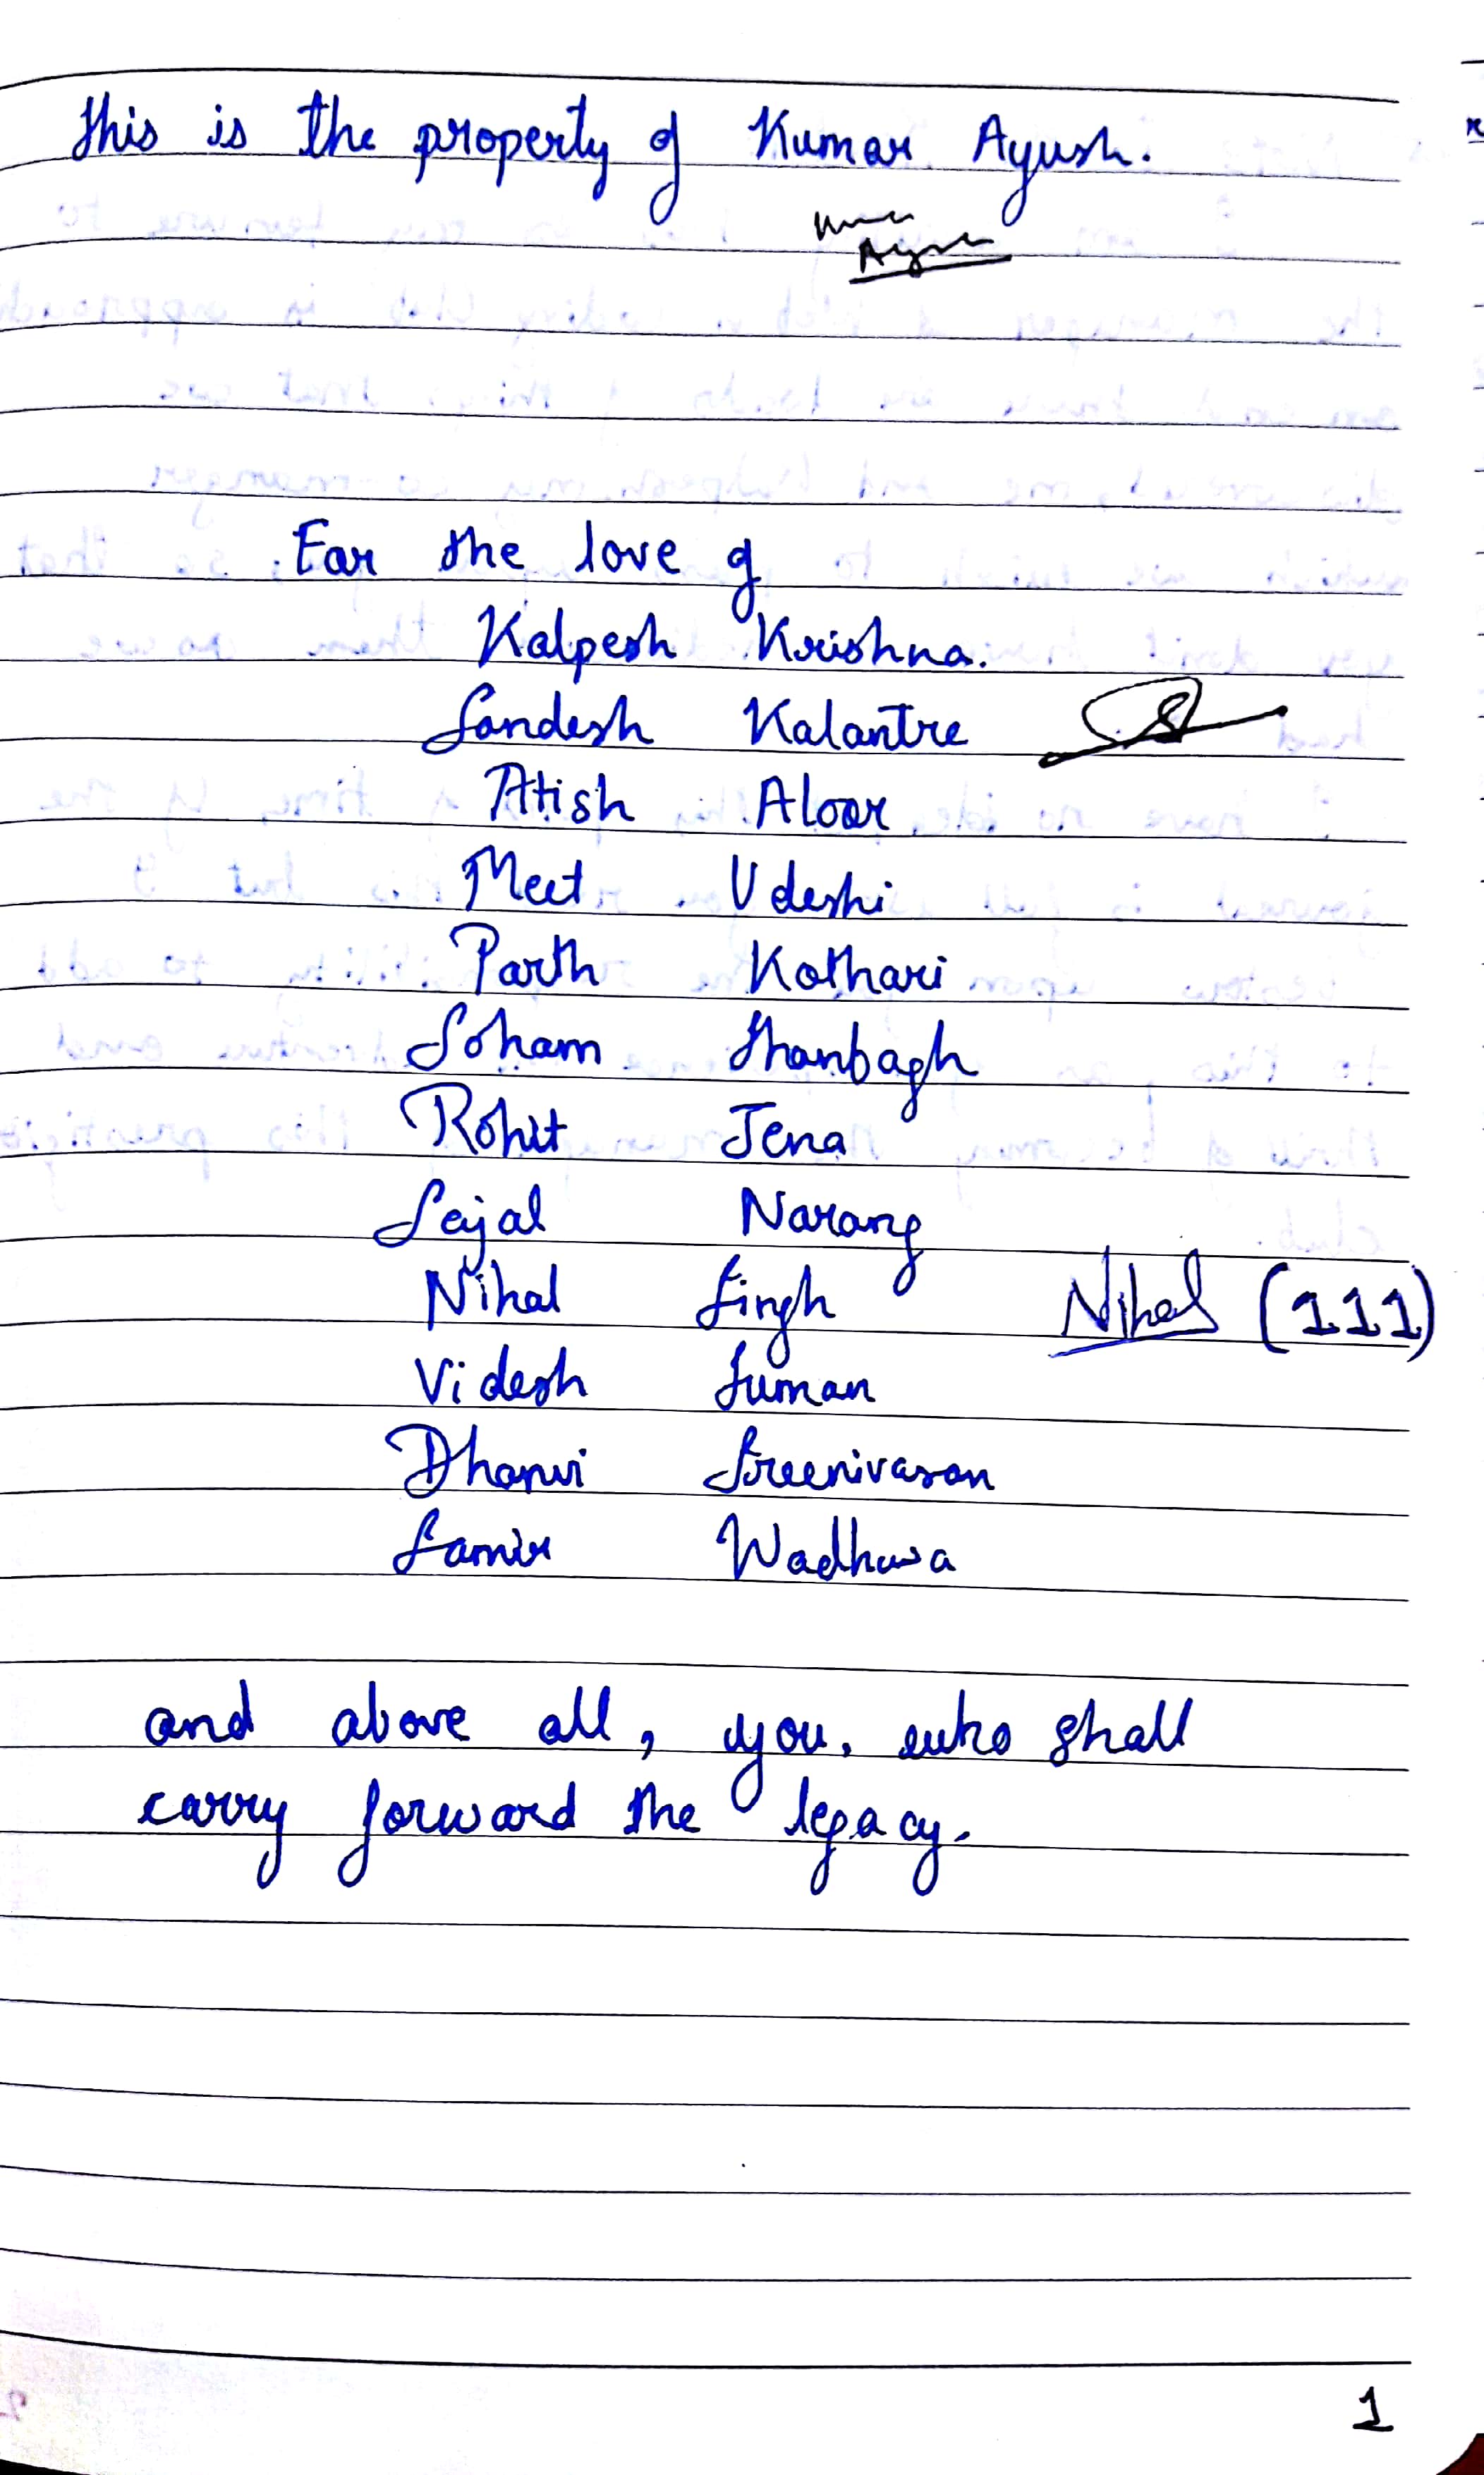 This is the property of Kumar Ayush.
Ayush
For the love of
Kalpesh Krishna.
Sandesh Kalantre
Atish Aloor
Meet Udeshi
Parth Kothari
Soham Shanbagh
Rohit Jena
Sejal Narang
Nihal Singh Nihal (111)
Videsh Suman
Dhanvi Sreenivasan
Samir Wadhwa
and above all, you, who shall
carry forward the legacy.
1